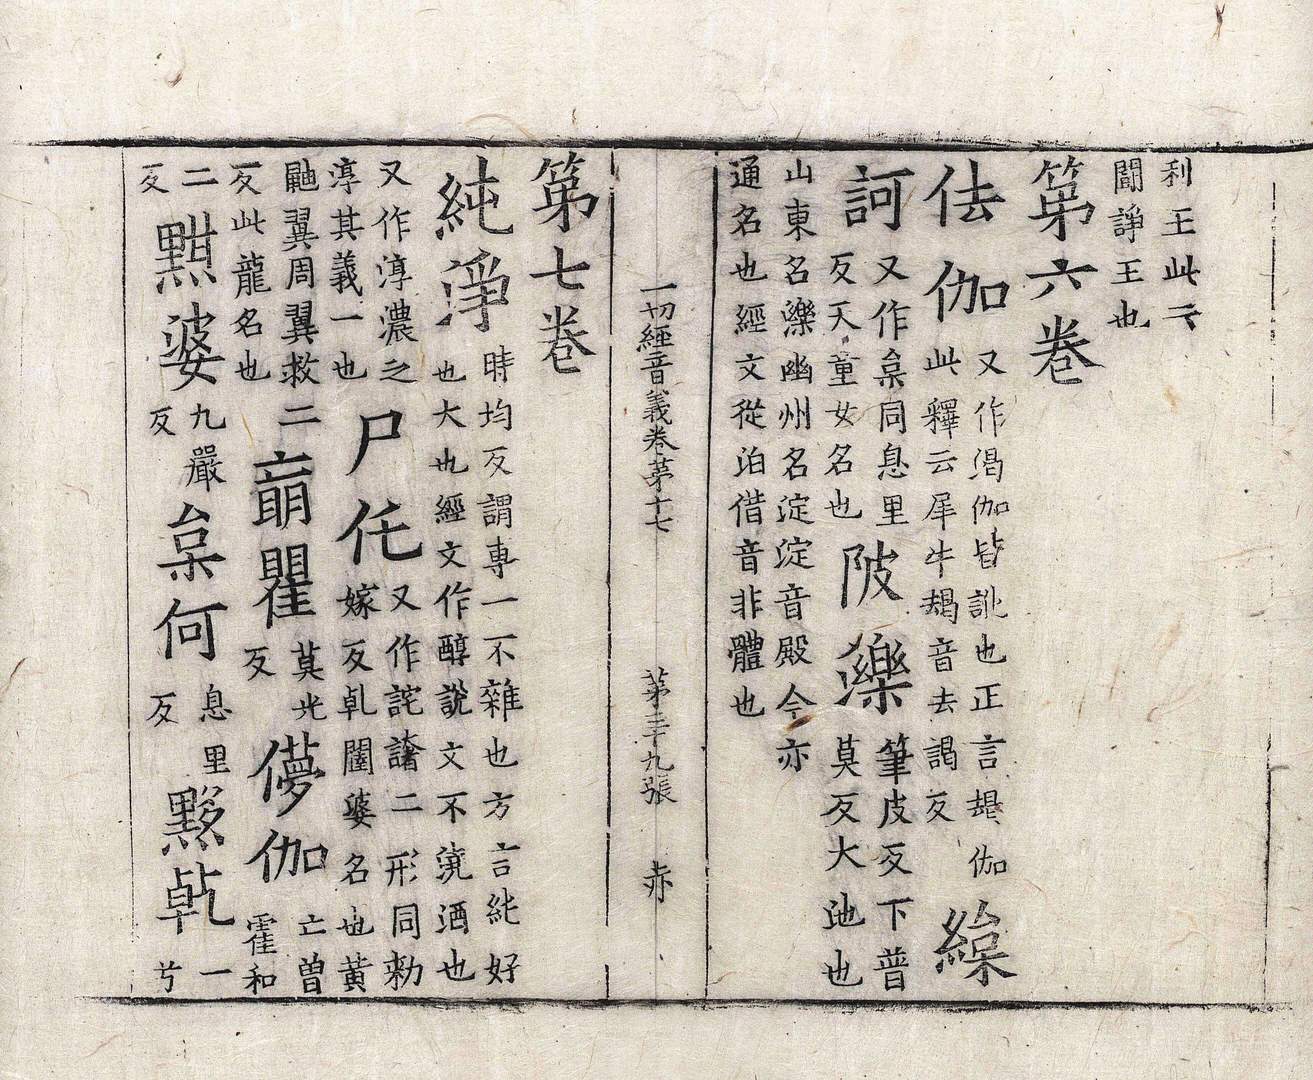 利王此云
閻諍王也
第六卷
佉伽
又作渴伽皆訛也正言朅伽
此釋云犀牛朅音去謁反
繰
訶
又作喿同息里
反天童女名也
陂濼
筆皮反下普
莫反大池也
山東名濼幽州名淀淀音殿今亦
通名也經文從泊借音非體也
一切經音義卷第十七 第三十九張 赤
第七卷
純淨
時均反謂專一不雜也方言純好
也大也經文作醇說文不澆酒也
又作淳濃之
淳其義一也
尸仛
又作詫䜆二形同勑
嫁反乹闥婆名也黃
鼬翼周翼救二
反此龍名也
䓢瞿
莫光
反
儚伽
亡曽
霍和
二
反
黚婆
九嚴
反
喿何
息里
反
黟乹
一
兮